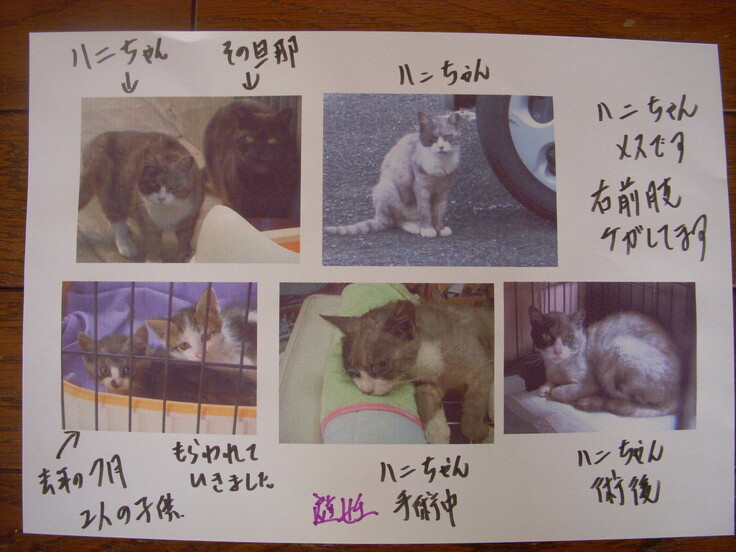 ハニちゃん
その旦那
ハニちゃん
ハニちゃん
メスです
右前腕
ケガしてます
去年の7月
2人の子供
もらわれて
いきました。
ハニちゃん
手術中
避妊
ハニちゃん
術後